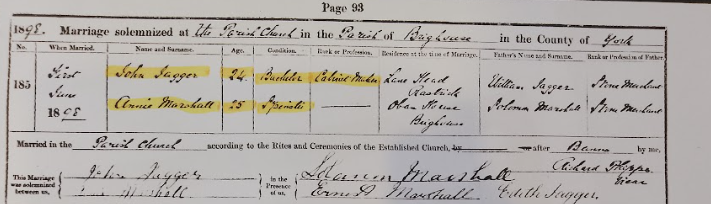 Page 93
1898. Marriage solemnized at the Parish Church in the Parish of Brighouse in the County of York
No. When Married. Name and Surname. Age. Condition. Rank or Profession. Residence at the time of Marriage. Father's Name and Surname. Rank or Profession of Father.
185 First June 1898 John Jagger 24 Bachelor Cabinet Maker Lane Head Rastrick William Jagger Stone Merchant
Annie Marshall 25 Spinster Brighouse Solomon Marshall Stone Merchant
Married in the Parish Church according to the Rites and Ceremonies of the Established Church, by after Banns by me,
This Marriage was solemnized between us, John Jagger Marshall in the Presence of us, Marshall Ernest Marshall Edith Jagger. Richard